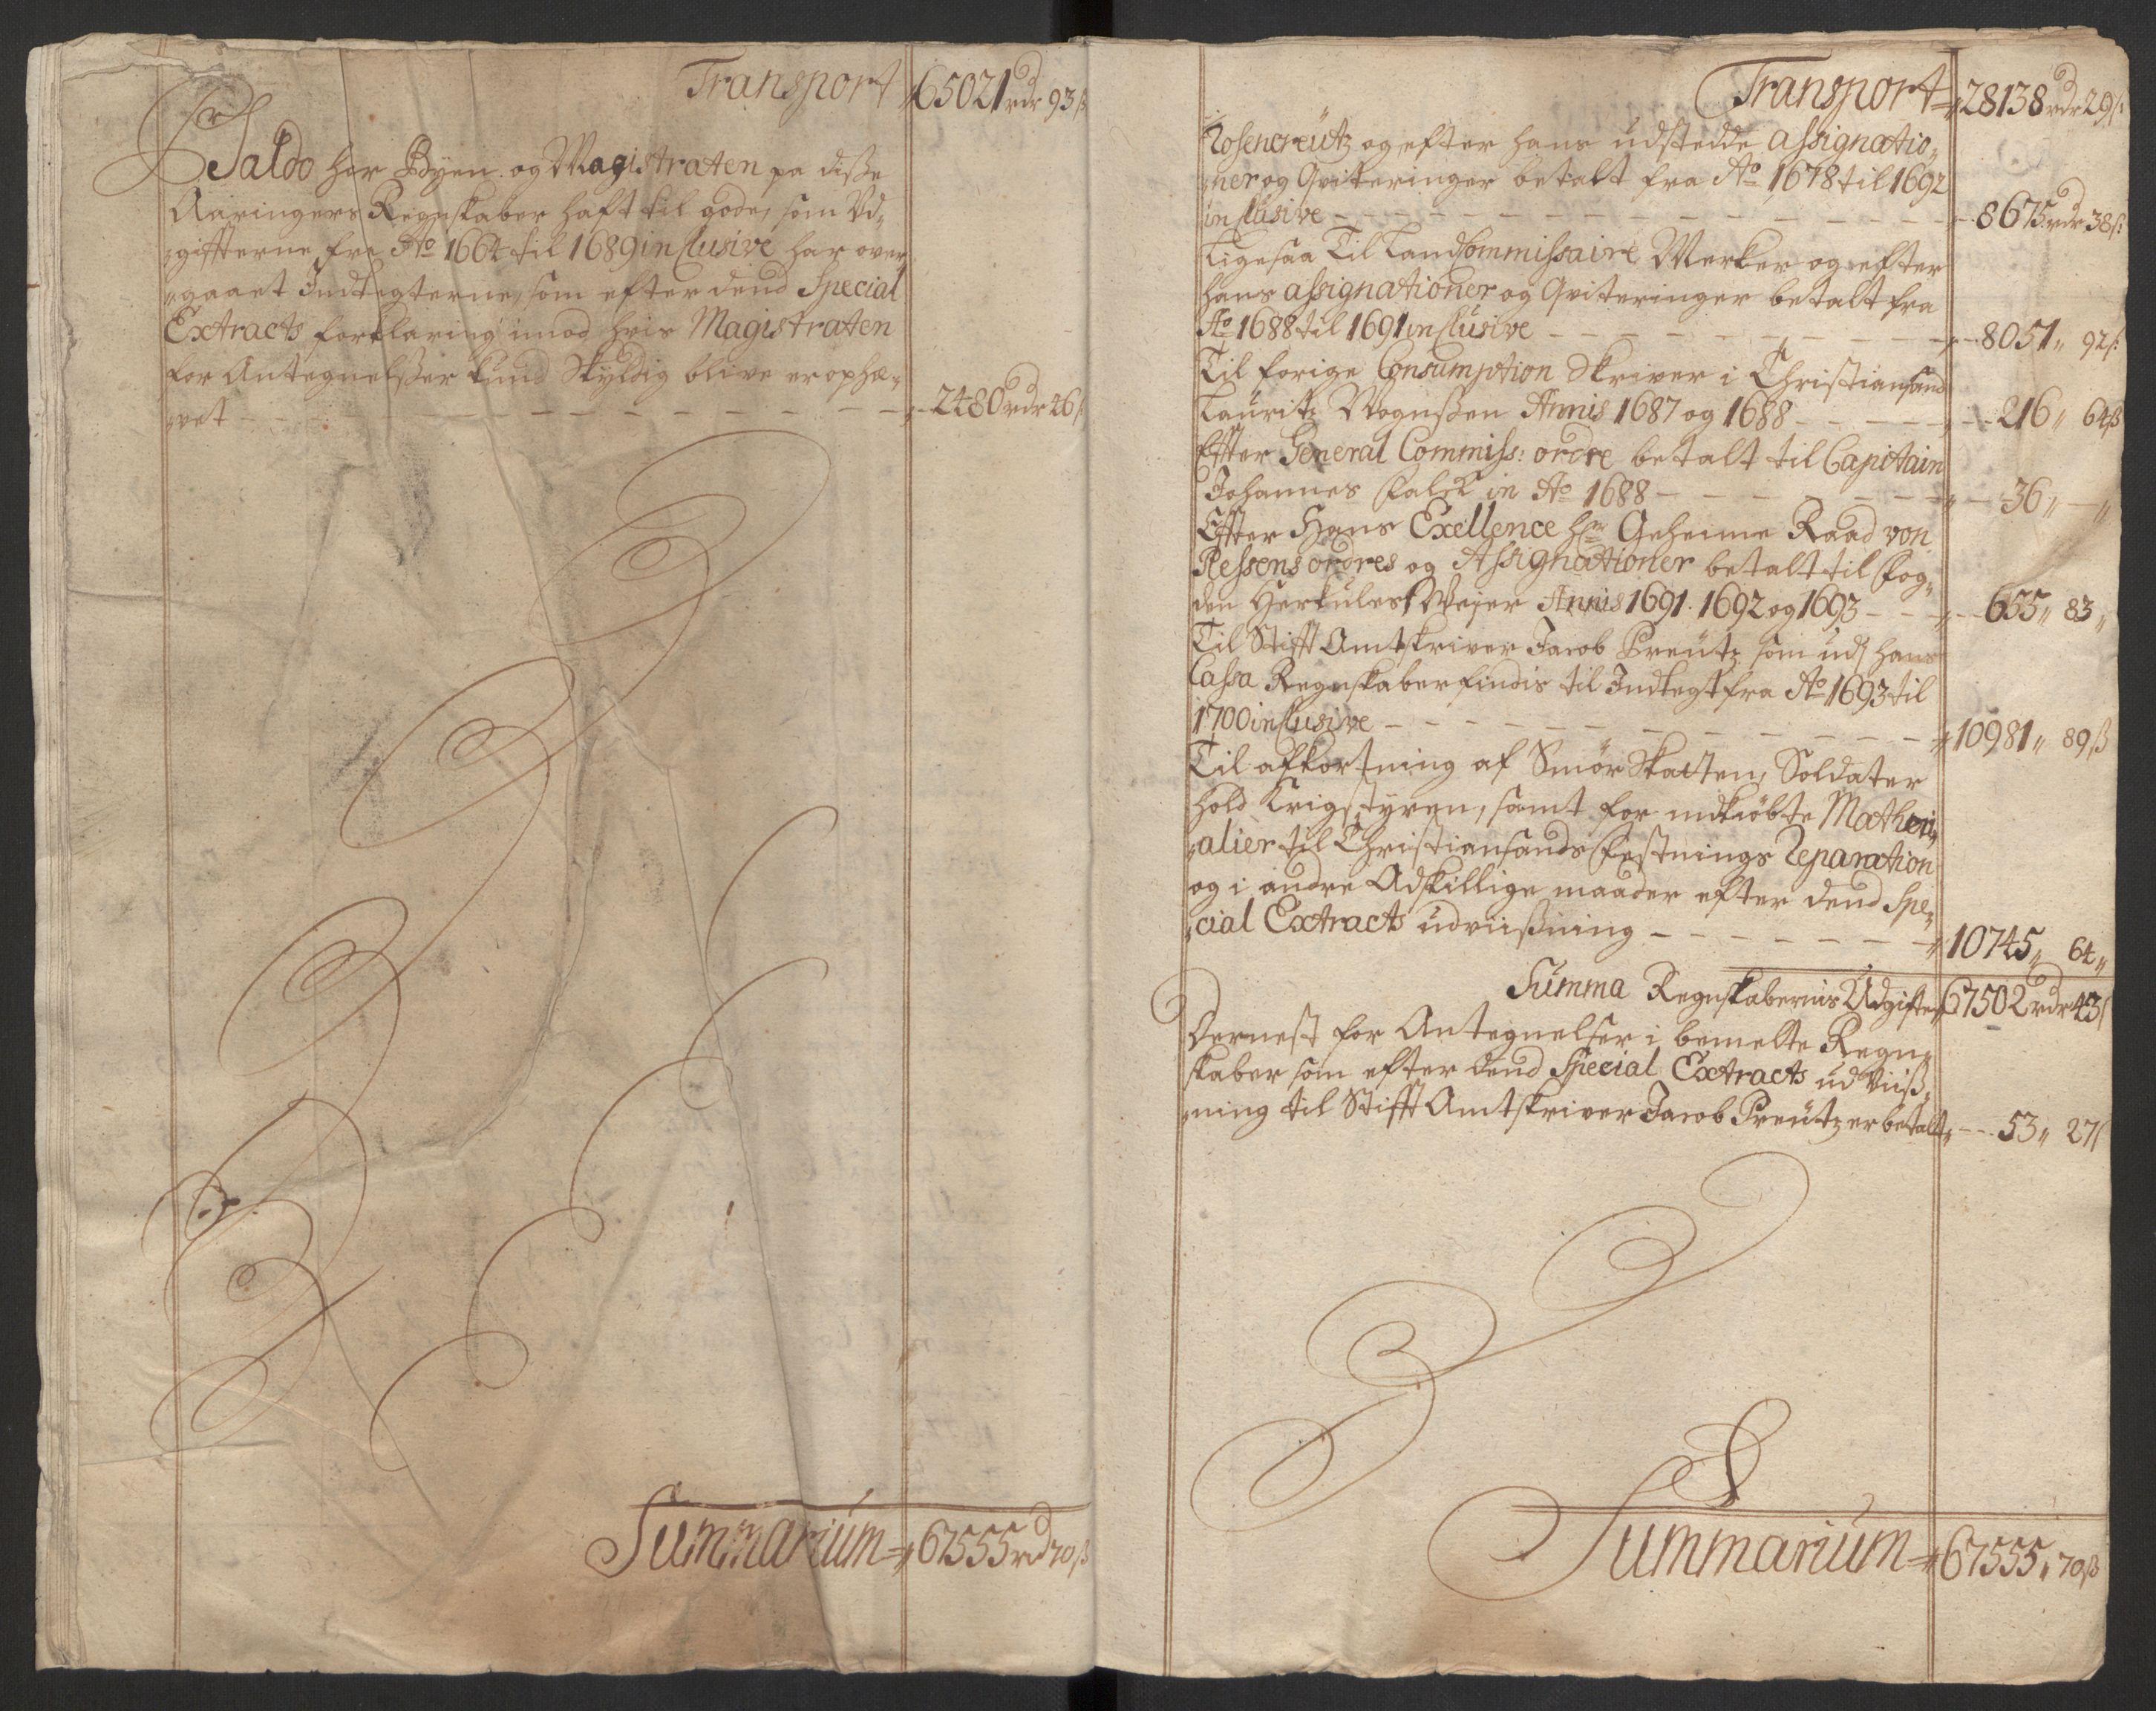 Transport 65021 rdr 93 ß
Pr Saldo har Byen og Magistraten pa disse
Aaringers Regnskaber haft til gode, som Vd„
„giffterne fra Ao 1664 til 1689 inclusive har over
„gaaet Indtegterne, som efter dend Special
Extracts forklaring imod hvis Magistraten
for Antegnelsser kund Skyldig blive er ophæ„
„vet 2480 rdr 46 ß
Summarium 67555 rd 70 ß
Transport 28138 rdr 29 ß:
Rosencreütz og efter hans udstedde assignatio„
„ner og Qviteringer betalt fra Ao 1678 til 1692
inclusive 8675 rdr 38 ß:
Ligesaa Til Landcommissaire Werker og efter
hans assignationer og Qviteringer betalt fra
Ao 1688 til 1691 inclusive 8051„ 92 ß:
Til forige Consumption Skriver i Christiansand
Lauritz Mognssen Annis 1687 og 1688 216„ 64 ß
Efter General Commiss: ordre betalt til Capitain
Johannes Falck in Ao 1688 36„ — „
Efter Hans Exellence hr Geheime Raad von
Plessens ordres og Assignationer betalt til Fog„
den Herkules Weyer Annis 1691. 1692 og 1693 655„ 83„
Til Stifft Amtskriver Jacob Preutz som udj hans
Cassa Regnskaber findis til Indtegt fra Ao 1693 til
1700 inclusive 10981„ 89 ß
Til afkortning af Smör Skatten, Soldater
hold Krigstyren, samt for indkiøbte Matheri„
„alier til Christiansands Festnings Reparation
og i andre Adskillige maader efter dend Spe„
„cial Extracts udviissning 10745„ 64„
Summa Regnskabernis Udgifter 67502 rdr 43 ß
Dernest for Antegnelser i bemelte Regn„
skaber som efter dend Special Extracts ud Viiß„
„ning til Stifft Amtskriver Jacob Preutz er betalt 53„ 27 ß
Summarium 67555„ 70 ß